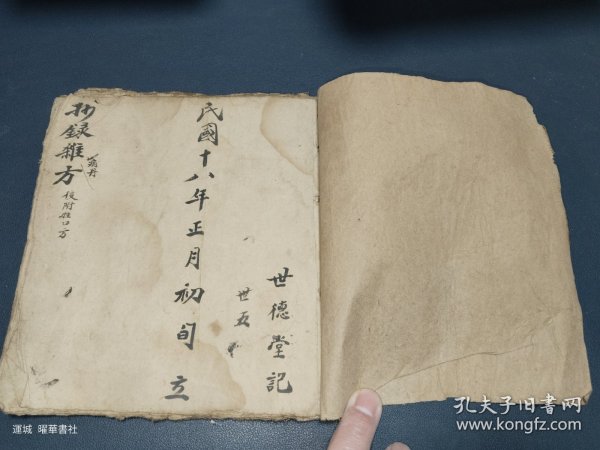 世德堂記
世五
民國十八年正月初旬立
抄録雜方
後附
方
運城 曜華書社
孔夫子旧書网
www.kongfz.com